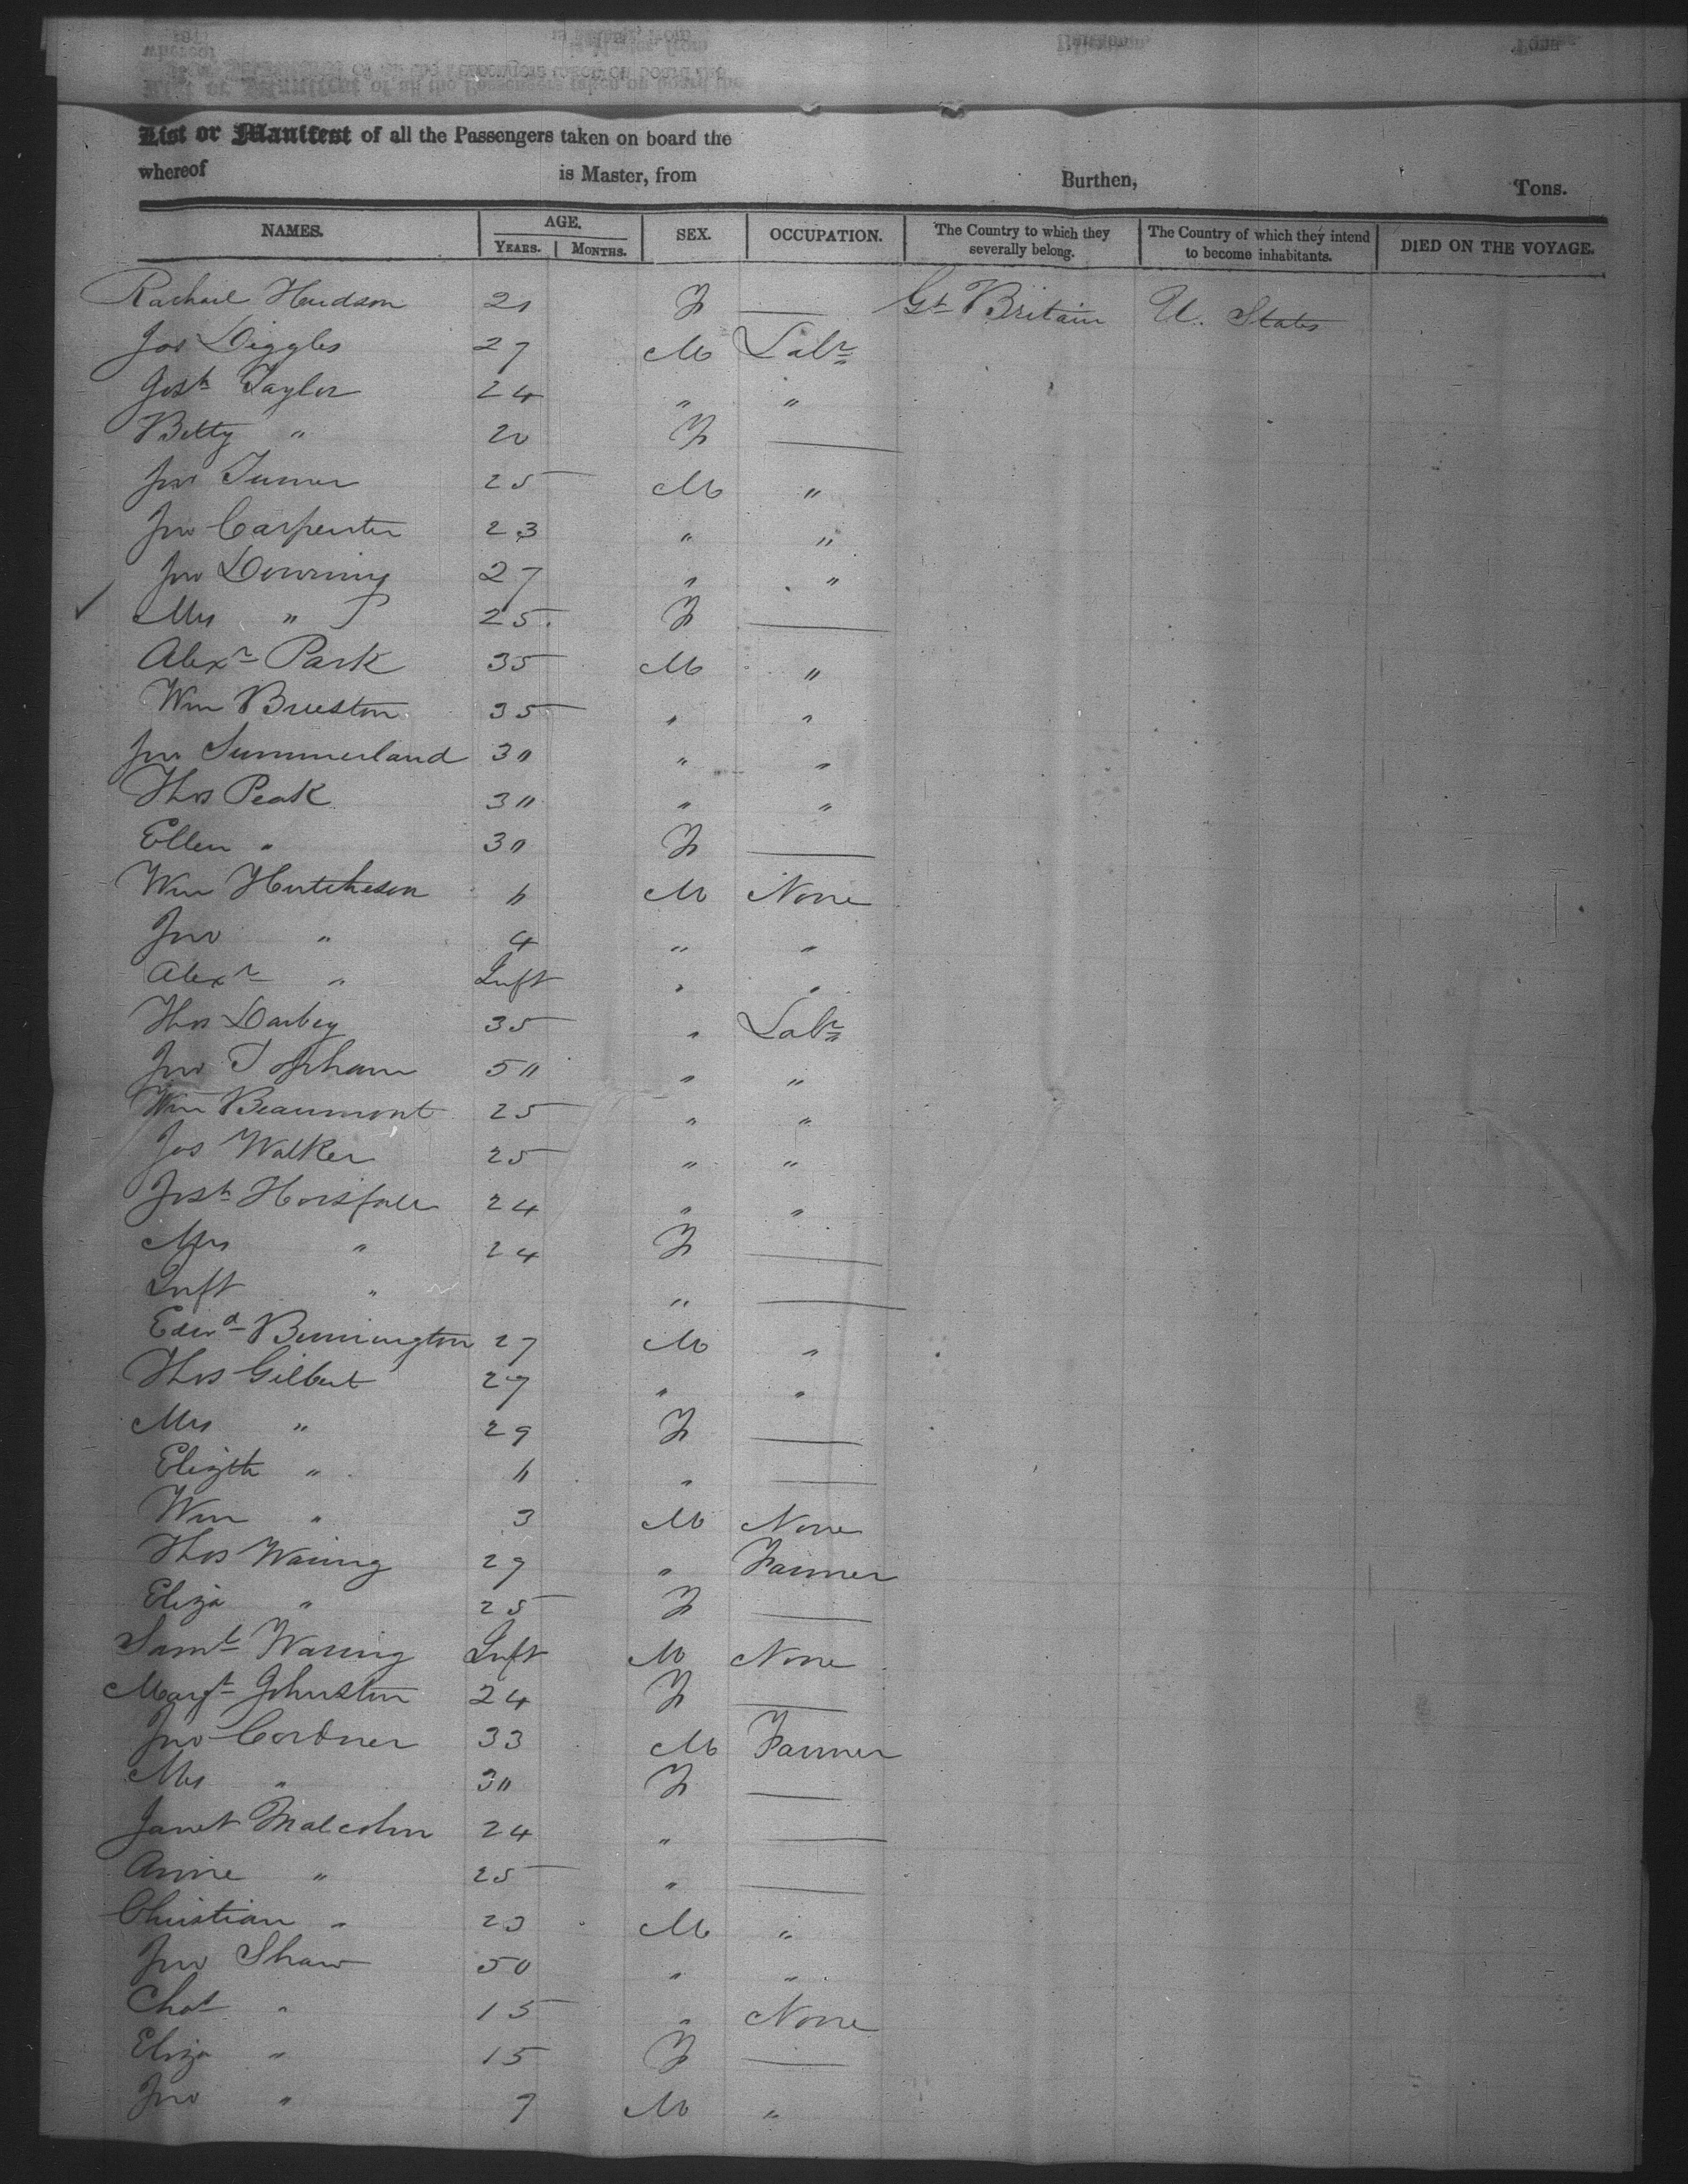 List or Manifest of all the Passengers taken on board the
whereof is Master, from Burthen, Tons.
NAMES. AGE. SEX. OCCUPATION. The Country to which they severally belong. The Country of which they intend to become inhabitants. DIED ON THE VOYAGE.
YEARS. MONTHS.
Rachael Hudson 21 F — Gt Britain U. States
Jas Diggles 27 M Labr
Josh Taylor 24 " "
Betty " 20 F —
Jno Turner 25 M "
Jno Carpenter 23 " "
Jno Downing 27 " "
Mrs " 25 F —
Alexr Park 35 M "
Wm Breeston 35 " "
Jno Summerland 30 " "
Thos Peak 30 " "
Ellen " 30 F —
Wm Hutcheson 6 M None
Jno " 4 " "
Alexr " Inft " "
Thos Darbey 35 " Labr
Jno Topham 50 " "
Wm Beaumont 25 " "
Jas Walker 25 " "
Josh Horsfall 24 " "
Mrs " 24 F —
Inft " " —
Edwd Bennington 27 M "
Thos Gilbert 27 " "
Mrs " 29 F —
Elizth " 6 " —
Wm " 3 M None
Thos Waring 29 " Farmer
Eliza " 25 F —
Saml Waring Inft M None
Margt Johnston 24 F —
Jno Cordner 33 M Farmer
Mrs " 30 F —
Janet Malcolm 24 " —
Annie " 25 " —
Christian " 23 M "
Jno Shaw 50 " "
Chas " 15 " None
Eliza " 15 F —
Jno " 9 M "